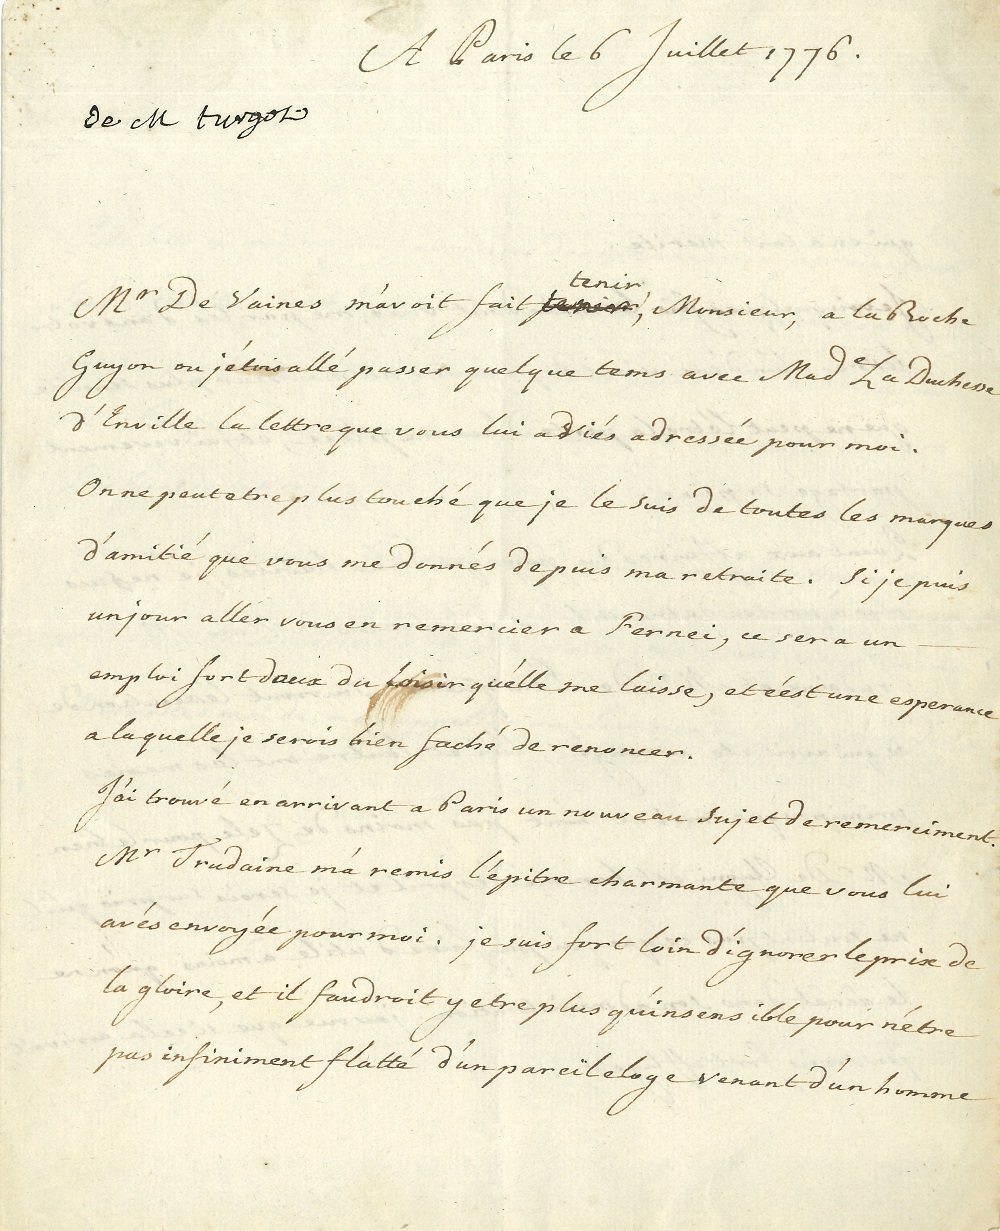 A Paris le 6 Juillet 1776.
de M turgot
tenir
Mr De Vaines m'avoit fait tenir, Monsieur, a la Roche
Guyon ou j'étois allé passer quelque tems avec Made La Duchesse
d'Enville la lettre que vous lui aviés adressée pour moi.
On ne peut etre plus touché que je le suis de toutes les marques
d'amitié que vous me donnés depuis ma retraite. Si je puis
un jour aller vous en remercier a Fernei, ce sera un
emploi fort doux du loisir qu'elle me laisse, et c'est une esperance
a laquelle je serois bien faché de renoncer.
J'ai trouvé en arrivant a Paris un nouveau sujet de remerciment.
Mr Trudaine m'a remis l'épitre charmante que vous lui
avés envoyée pour moi. je suis fort loin d'ignorer le prix de
la gloire, et il faudroit y etre plus qu'insensible pour n'étre
pas infiniment flatté d'un pareil eloge venant d'un homme